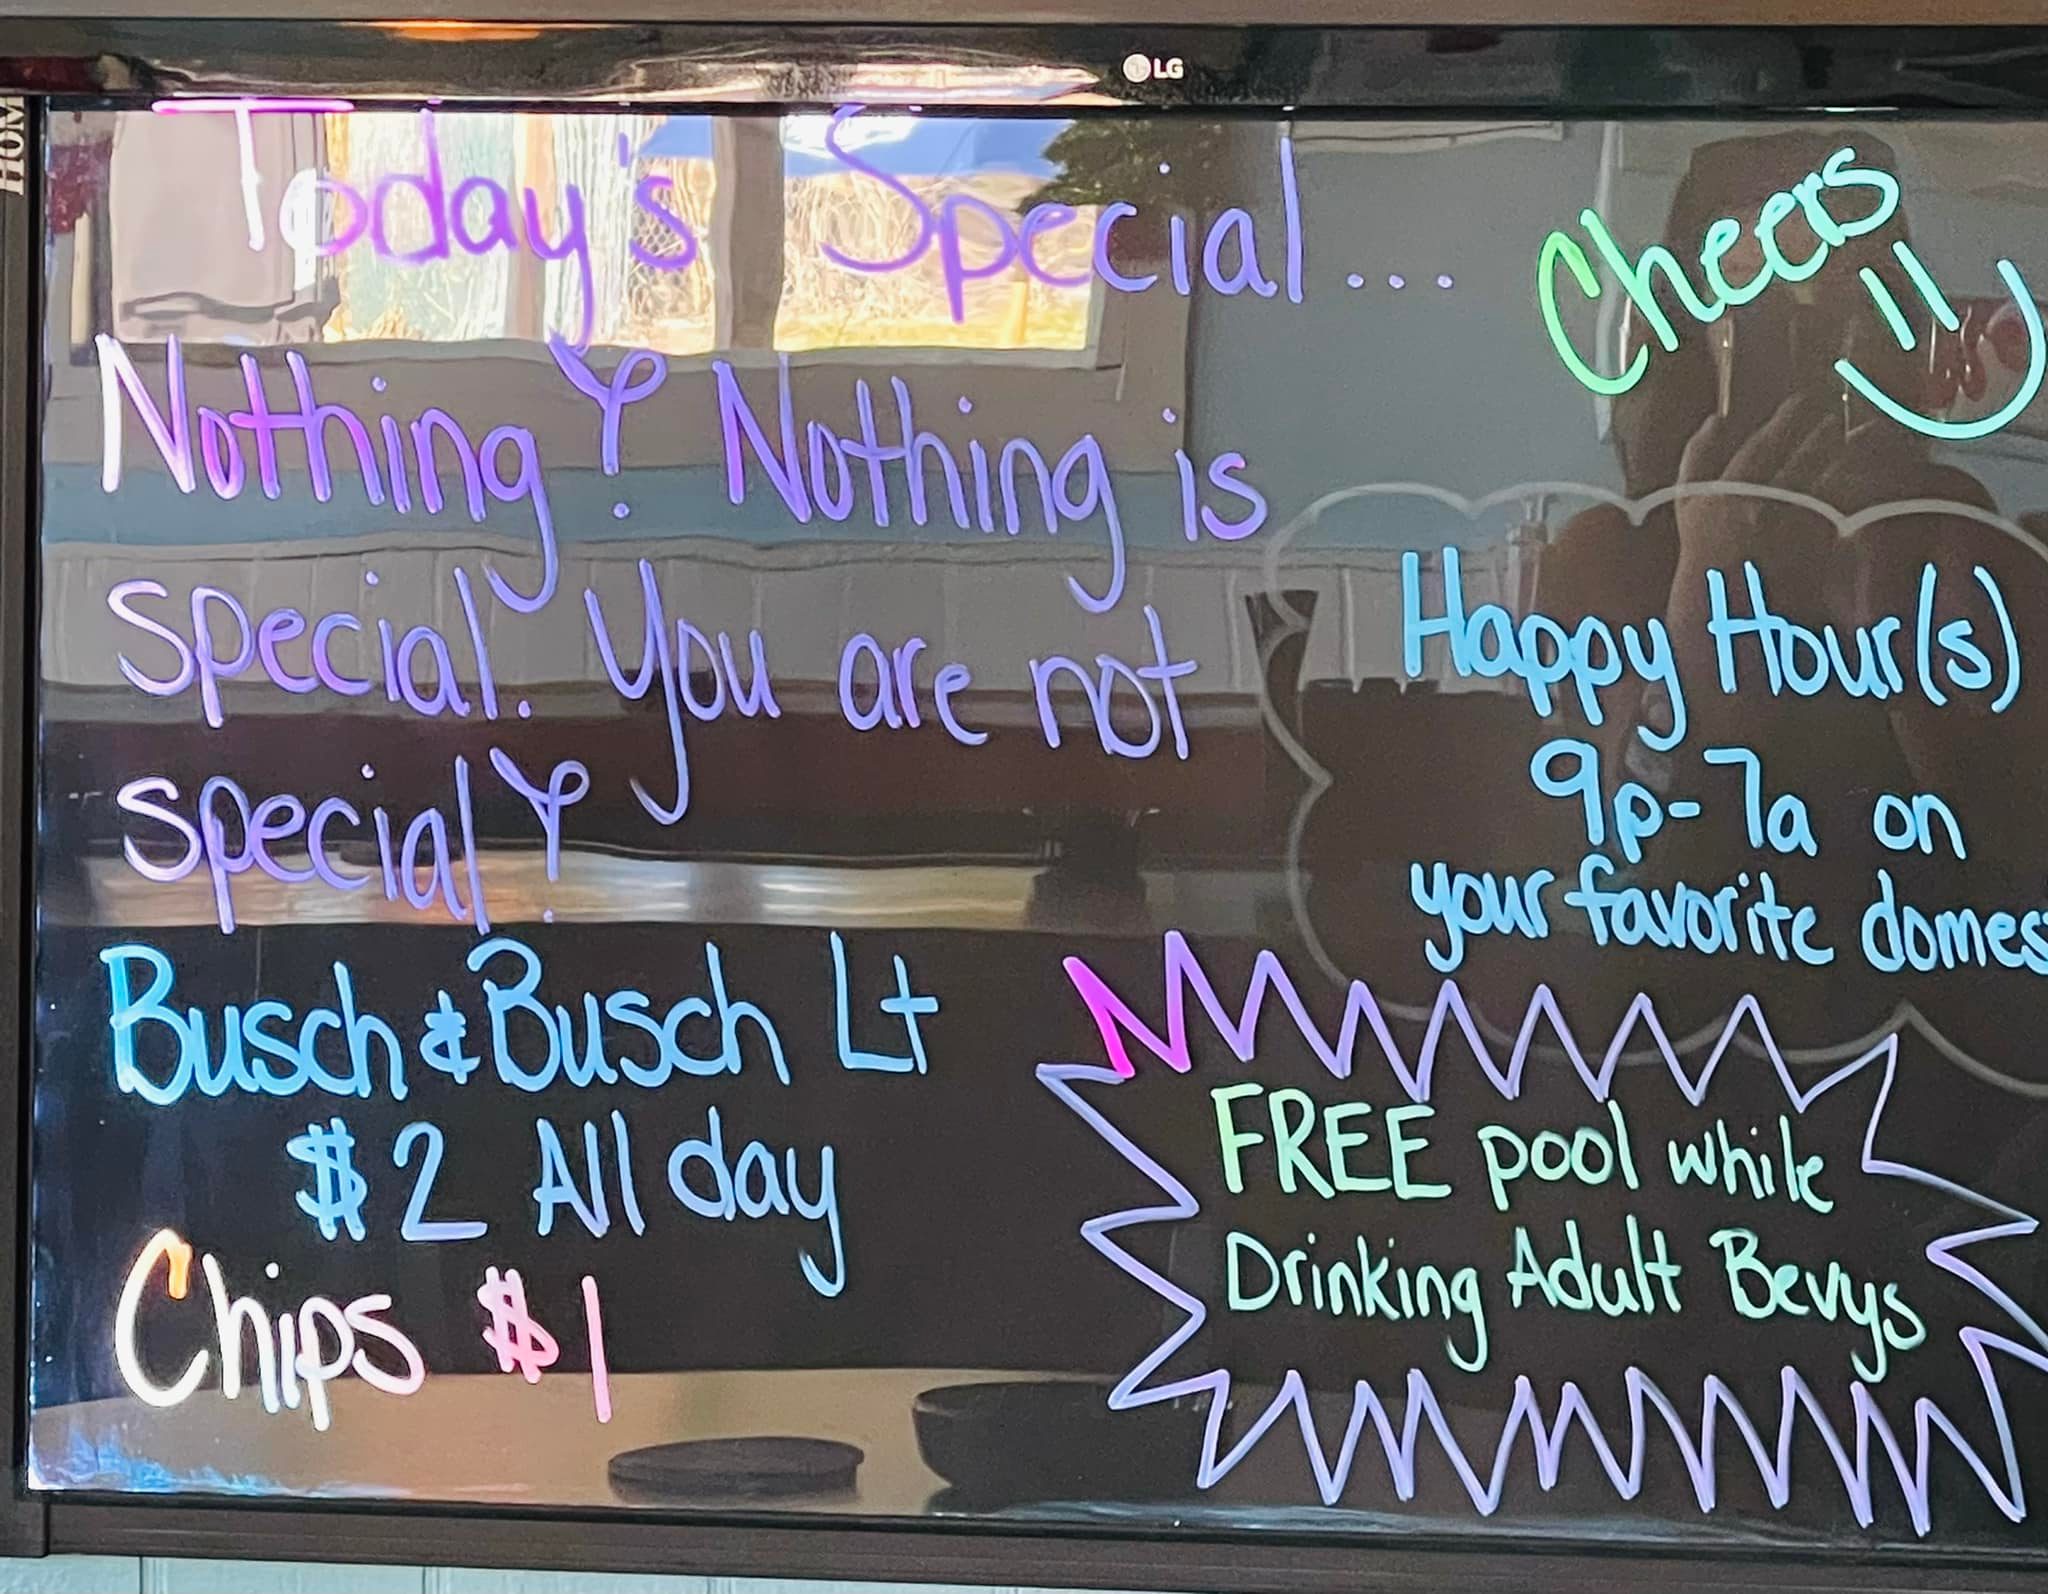 LG
HOM
Today's Special...
Cheers
Nothing? Nothing is
special. You are not
special?
Happy Hour(s)
9p-7a on
your favorite domes
Busch & Busch Lt
$2 All day
Chips $1
FREE pool while
Drinking Adult Bevys